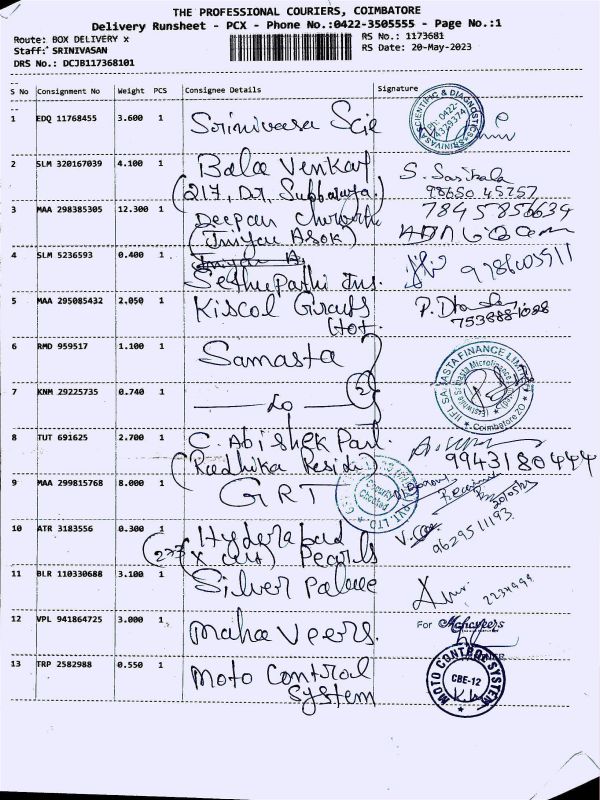 THE PROFESSIONAL COURIERS, COIMBATORE
Delivery Runsheet - PCX - Phone No.:0422-3505555 - Page No.:1
Route: BOX DELIVERY x
RS No.: 1173681
Staff: SRINIVASAN
RS Date: 20-May-2023
DRS No.: DCJB117368101
S No Consignment No Weight PCS Consignee Details Signature
1 EDQ 11768455 3.600 1 Srinivasa Scie
SRINIVASA SCIENTIFIC & DIAGNOSTICS
Ph: 0422-4379374
2 SLM 320167039 4.100 1 Bala Venkat S. Sasikala
(217, Dr. Subbaraya.) 98650 45757
3 MAA 298385305 12.300 1 Deepan 7845856639
Asok)
4 SLM 5236593 0.400 1
Sethupathi Ins. 9786005911
5 MAA 295085432 2.050 1 Kiscol Grands
Hot. 7538881088
6 RMD 959517 1.100 1 Samasta
IIFL SAMASTA FINANCE LIMITED
Coimbatore ZO
7 KNM 29225735 0.740 1 — Do —
8 TUT 691625 2.700 1 C. Abishek Paul.
(Radhika Residi) 9943180444
9 MAA 299815768 8.000 1 GRT
Security Checked
PVT LTD.
10 ATR 3183556 0.300 1 Hyderabad
(277 X cut) Pearls 9629511193
11 BLR 110330688 3.100 1 Silver Palace 2234999
12 VPL 941864725 3.000 1 Maha Veers.
For Mahaveers
13 TRP 2582988 0.550 1 Moto Control
System
MOTO CONTROL SYSTEM
CBE-12